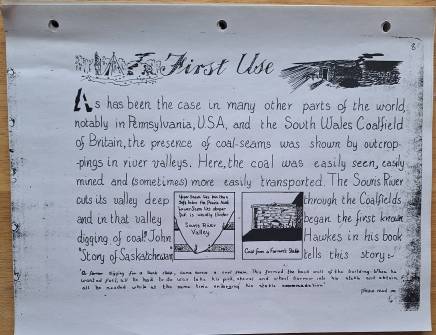 8
First Use
As has been the case in many other parts of the world,
notably in Pennsylvania, U.S.A, and the South Wales Coalfield
of Britain, the presence of coal-seams was shown by outcrop-
-pings in river valleys. Here, the coal was easily seen, easily
mined and (sometimes) more easily transported. The Souris River
cuts its valley deep through the Coalfields,
and in that valley began the first known
digging of coal. John Hawkes in his book
"Story of Saskatchewan" tells this story:-
Souris River
Valley
Coal from a Farmer's Stable
"A farmer digging for a bank stable, came across a coal seam. This formed the back wall of the building. When he
wanted fuel, all he had to do was take his pick, shovel and wheel barrow into his stable and obtain
all he needed while at the same time enlarging his stable accommodation"
please read on